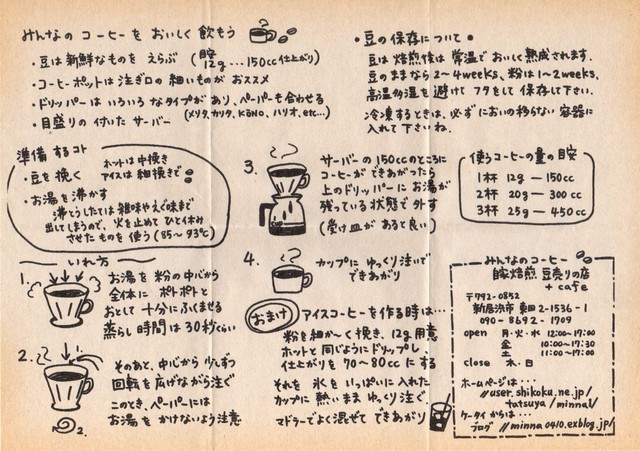 みんなの コーヒーを おいしく 飲もう
・豆は新鮮なものを えらぶ (目安 12g...150cc仕上がり)
・コーヒーポットは注ぎ口の 細いものが おススメ
・ドリッパーは いろいろ なタイプが あり、ペーパーも合わせる
(メリタ, カリタ, KŌNO, ハリオ, etc...)
・目盛りの 付いた サーバー
・豆の保存について・
豆は 焙煎後は 常温で おいしく熟成されます.
豆のままなら 2〜4weeks、粉は1〜2weeks、
高温多湿を 避けて フタをして 保存して下さい.
冷凍するときは、必ず においの移らない 容器に
入れて下さいね.
準備 するコト
・豆を 挽く ホットは中挽き
アイスは 細挽きで
・お湯を 沸かす
沸とうしたては 雑味やえぐ味まで
出してしまうので、火を止めて ひと休み
させたものを 使う (85〜93℃)
いれ方
1. お湯を 粉の中心から
全体に ポトポトと
おとして 十分にふくませる
蒸らし 時間は 30秒くらい
2. そのあと、中心から 少しずつ
回転を広げながら注ぐ
このとき、ペーパーには
お湯を かけないよう 注意
2.
3. サーバーの 150ccのところに
コーヒーができあがったら
上のドリッパーに お湯が
残っている 状態で 外す
(受け皿が あると良い)
4. カップに ゆっくり注いで
できあがり
おまけ アイスコーヒーを 作る時は…
粉を細か〜く 挽き、12g 用意
ホットと 同じように ドリップし、
仕上がりを 70〜80cc にする
それを 氷を いっぱいに入れた
カップに 熱いまま ゆっくり 注ぐ.
マドラーで よく混ぜて できあがり
使うコーヒーの量の目安
1杯 12g ― 150cc
2杯 20g ― 300 cc
3杯 25g ― 450 cc
みんなのコーヒー
自家焙煎 豆売りの店
+ cafe
〒792-0852
新居浜市 東田 2-1536-1
090-8692-1709
open 月・火・水 12:00〜17:00
金 10:00〜17:30
土 11:00〜17:00
close 木・日
ホームページは…
//user.shikoku.ne.jp/
tatsuya/minna1/
ケータイからは…
ブログ //minna0410.exblog.jp/